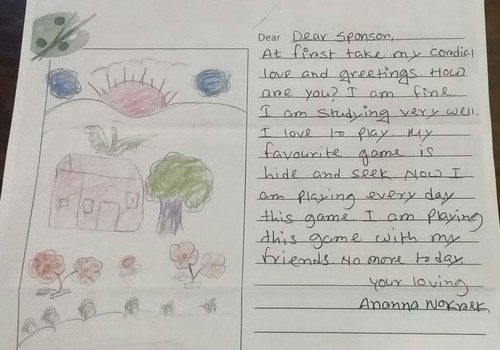 Dear Dear Sponsor,
At first take my cordial
love and greetings. How
are you? I am fine
I am studying very well.
I love to play. My
favourite game is
hide and seek. Now I
am playing every day
this game. I am playing
this game with my
friends. No more today
your loving
Ananna Noknek